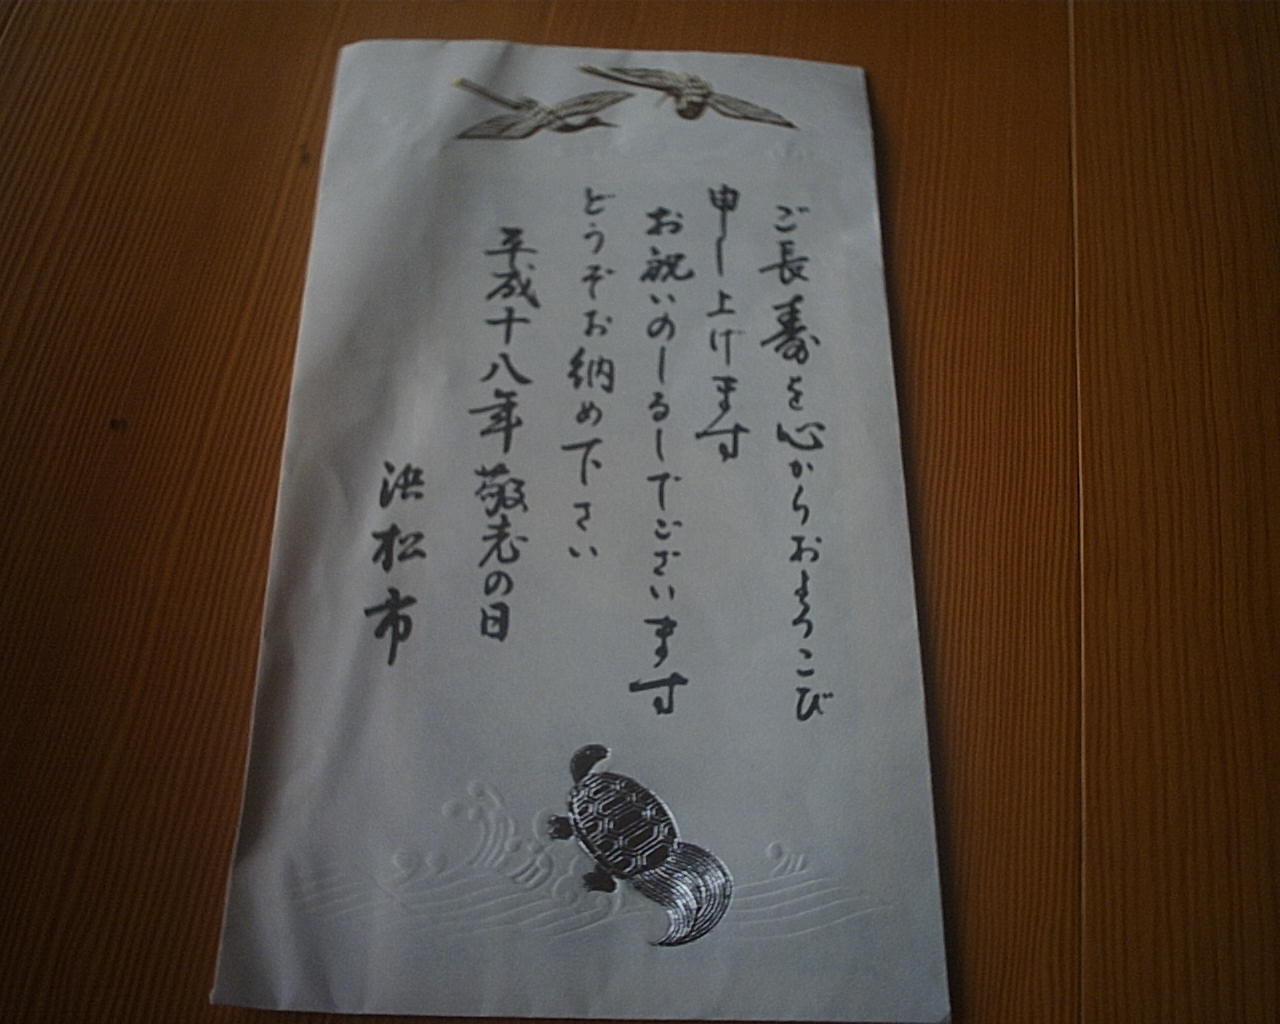 ご長寿を心からおよろこび
申し上げます
お祝いのしるしでございます
どうぞお納め下さい
平成十八年敬老の日
浜松市